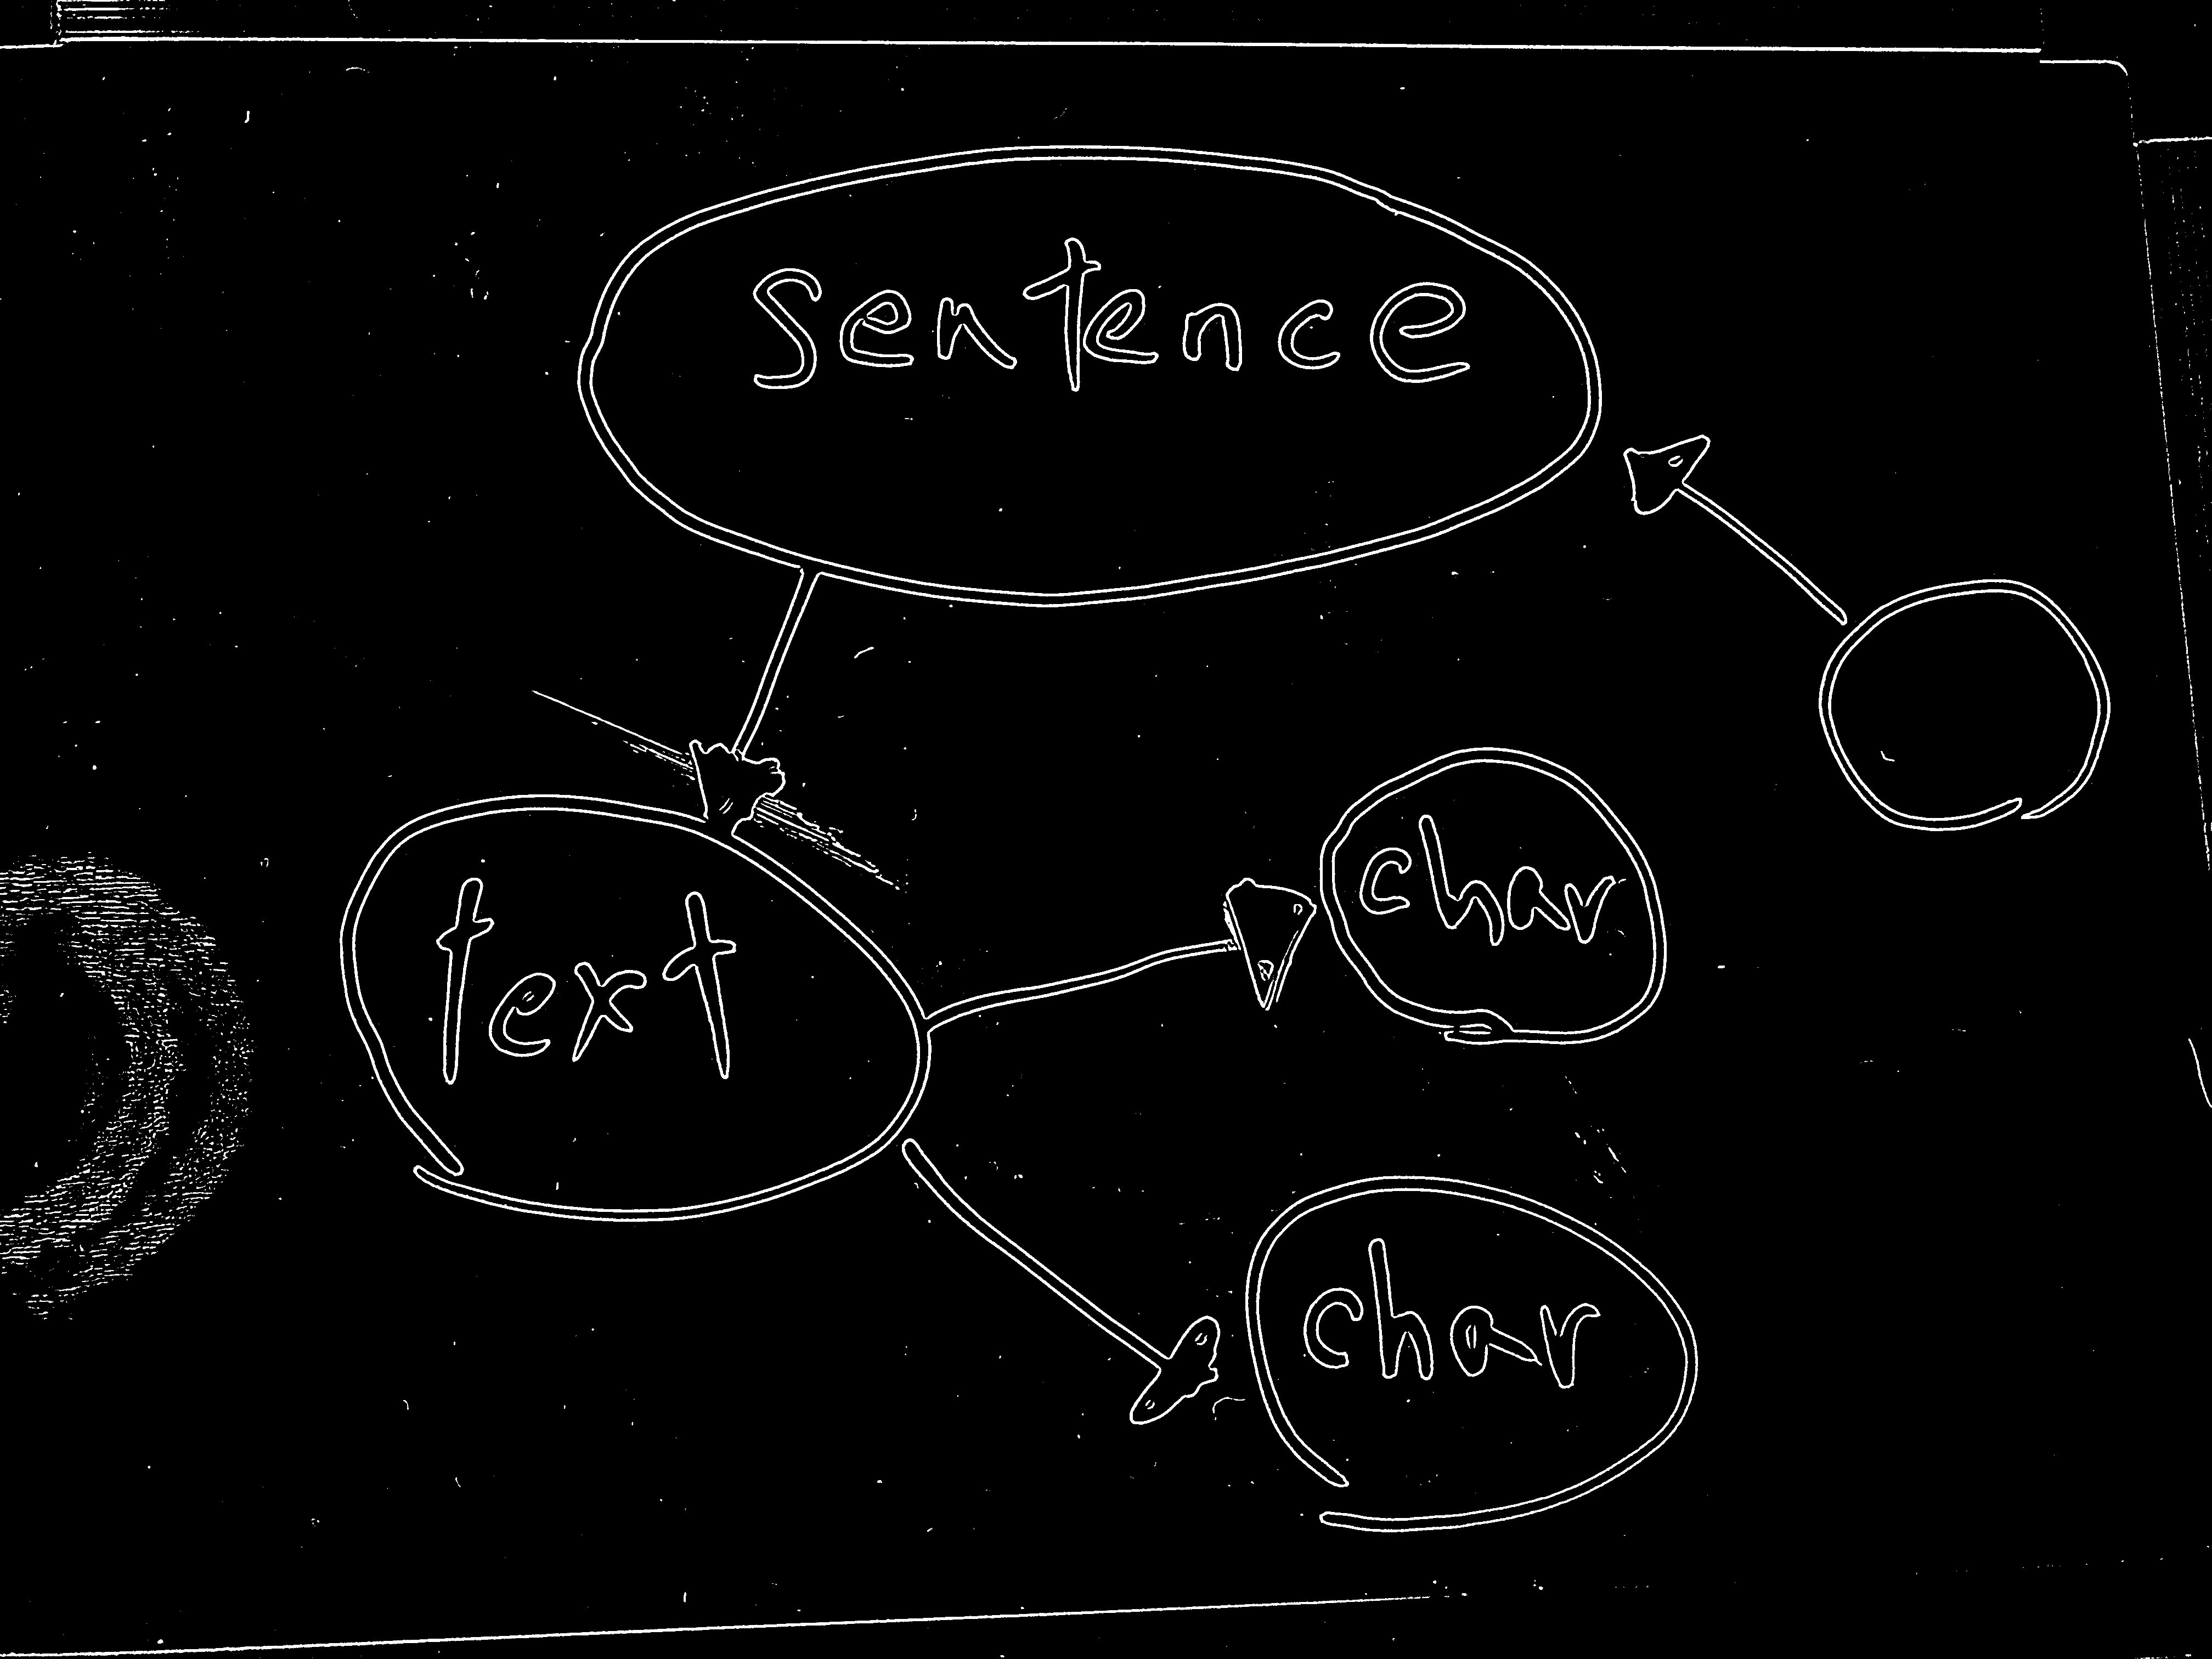 sentence
text
char
char